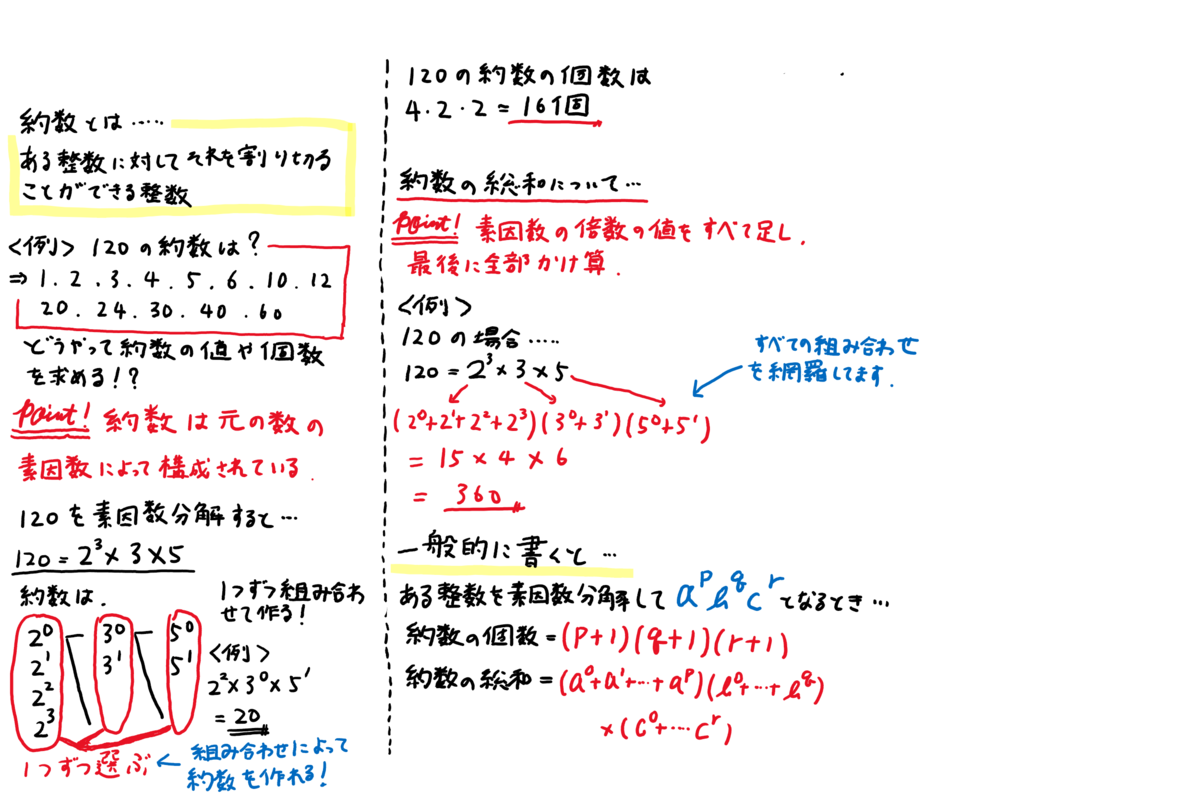 約数とは……
ある整数に対してそれを割り切る
ことができる整数
<例> 120の約数は?
⇒ 1. 2 . 3 . 4 . 5 . 6 . 10 . 12
20 . 24 . 30 . 40 . 60
どうやって約数の値や個数
を求める!?
Point! 約数は元の数の
素因数によって構成されている.
120を素因数分解すると…
120 = 2³ × 3 × 5
約数は.
2⁰ 3⁰ 5⁰
2¹ 3¹ 5¹
2²
2³
1つずつ選ぶ
1つずつ組み合わ
せて作る!
<例>
2² × 3⁰ × 5¹
= 20
← 組み合わせによって
約数を作れる!
120の約数の個数は
4・2・2 = 16個
約数の総和について…
Point! 素因数の倍数の値をすべて足し.
最後に全部かけ算.
<例>
120の場合……
120 = 2³ × 3 × 5
すべての組み合わせ
を網羅してます.
(2⁰+2¹+2²+2³)(3⁰+3¹)(5⁰+5¹)
= 15 × 4 × 6
= 360
一般的に書くと…
ある整数を素因数分解して aᵖb^qcʳ となるとき…
約数の個数 = (P+1)(q+1)(r+1)
約数の総和 = (a⁰+a¹+…+aᵖ)(b⁰+…+b^q)
×(c⁰+…cʳ)